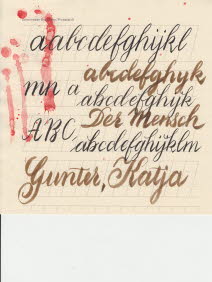 aabcdefghijkl
abcdefghyk
mn a abcdefghijk
Der Mensch
ABC, abcdefghijklm
Gunter, Katja